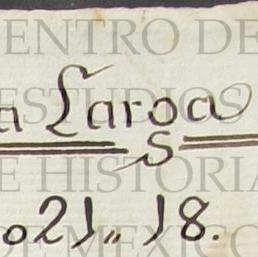 ENTRO DE
a Laroa
ESTUDIOS
S
E HISTORIA
o21,, 18.
DE MEXICO